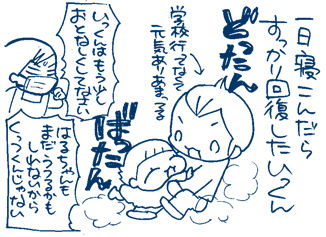 一日寝こんだら
すっかり回復したいっくん
どったん
学校行ってなくて
元気ありあまってる
ばったん
いっくんはもう少し
おとなしくしてなさい
はるちゃんも
まだうつるかも
しれないから
くっつくんじゃない